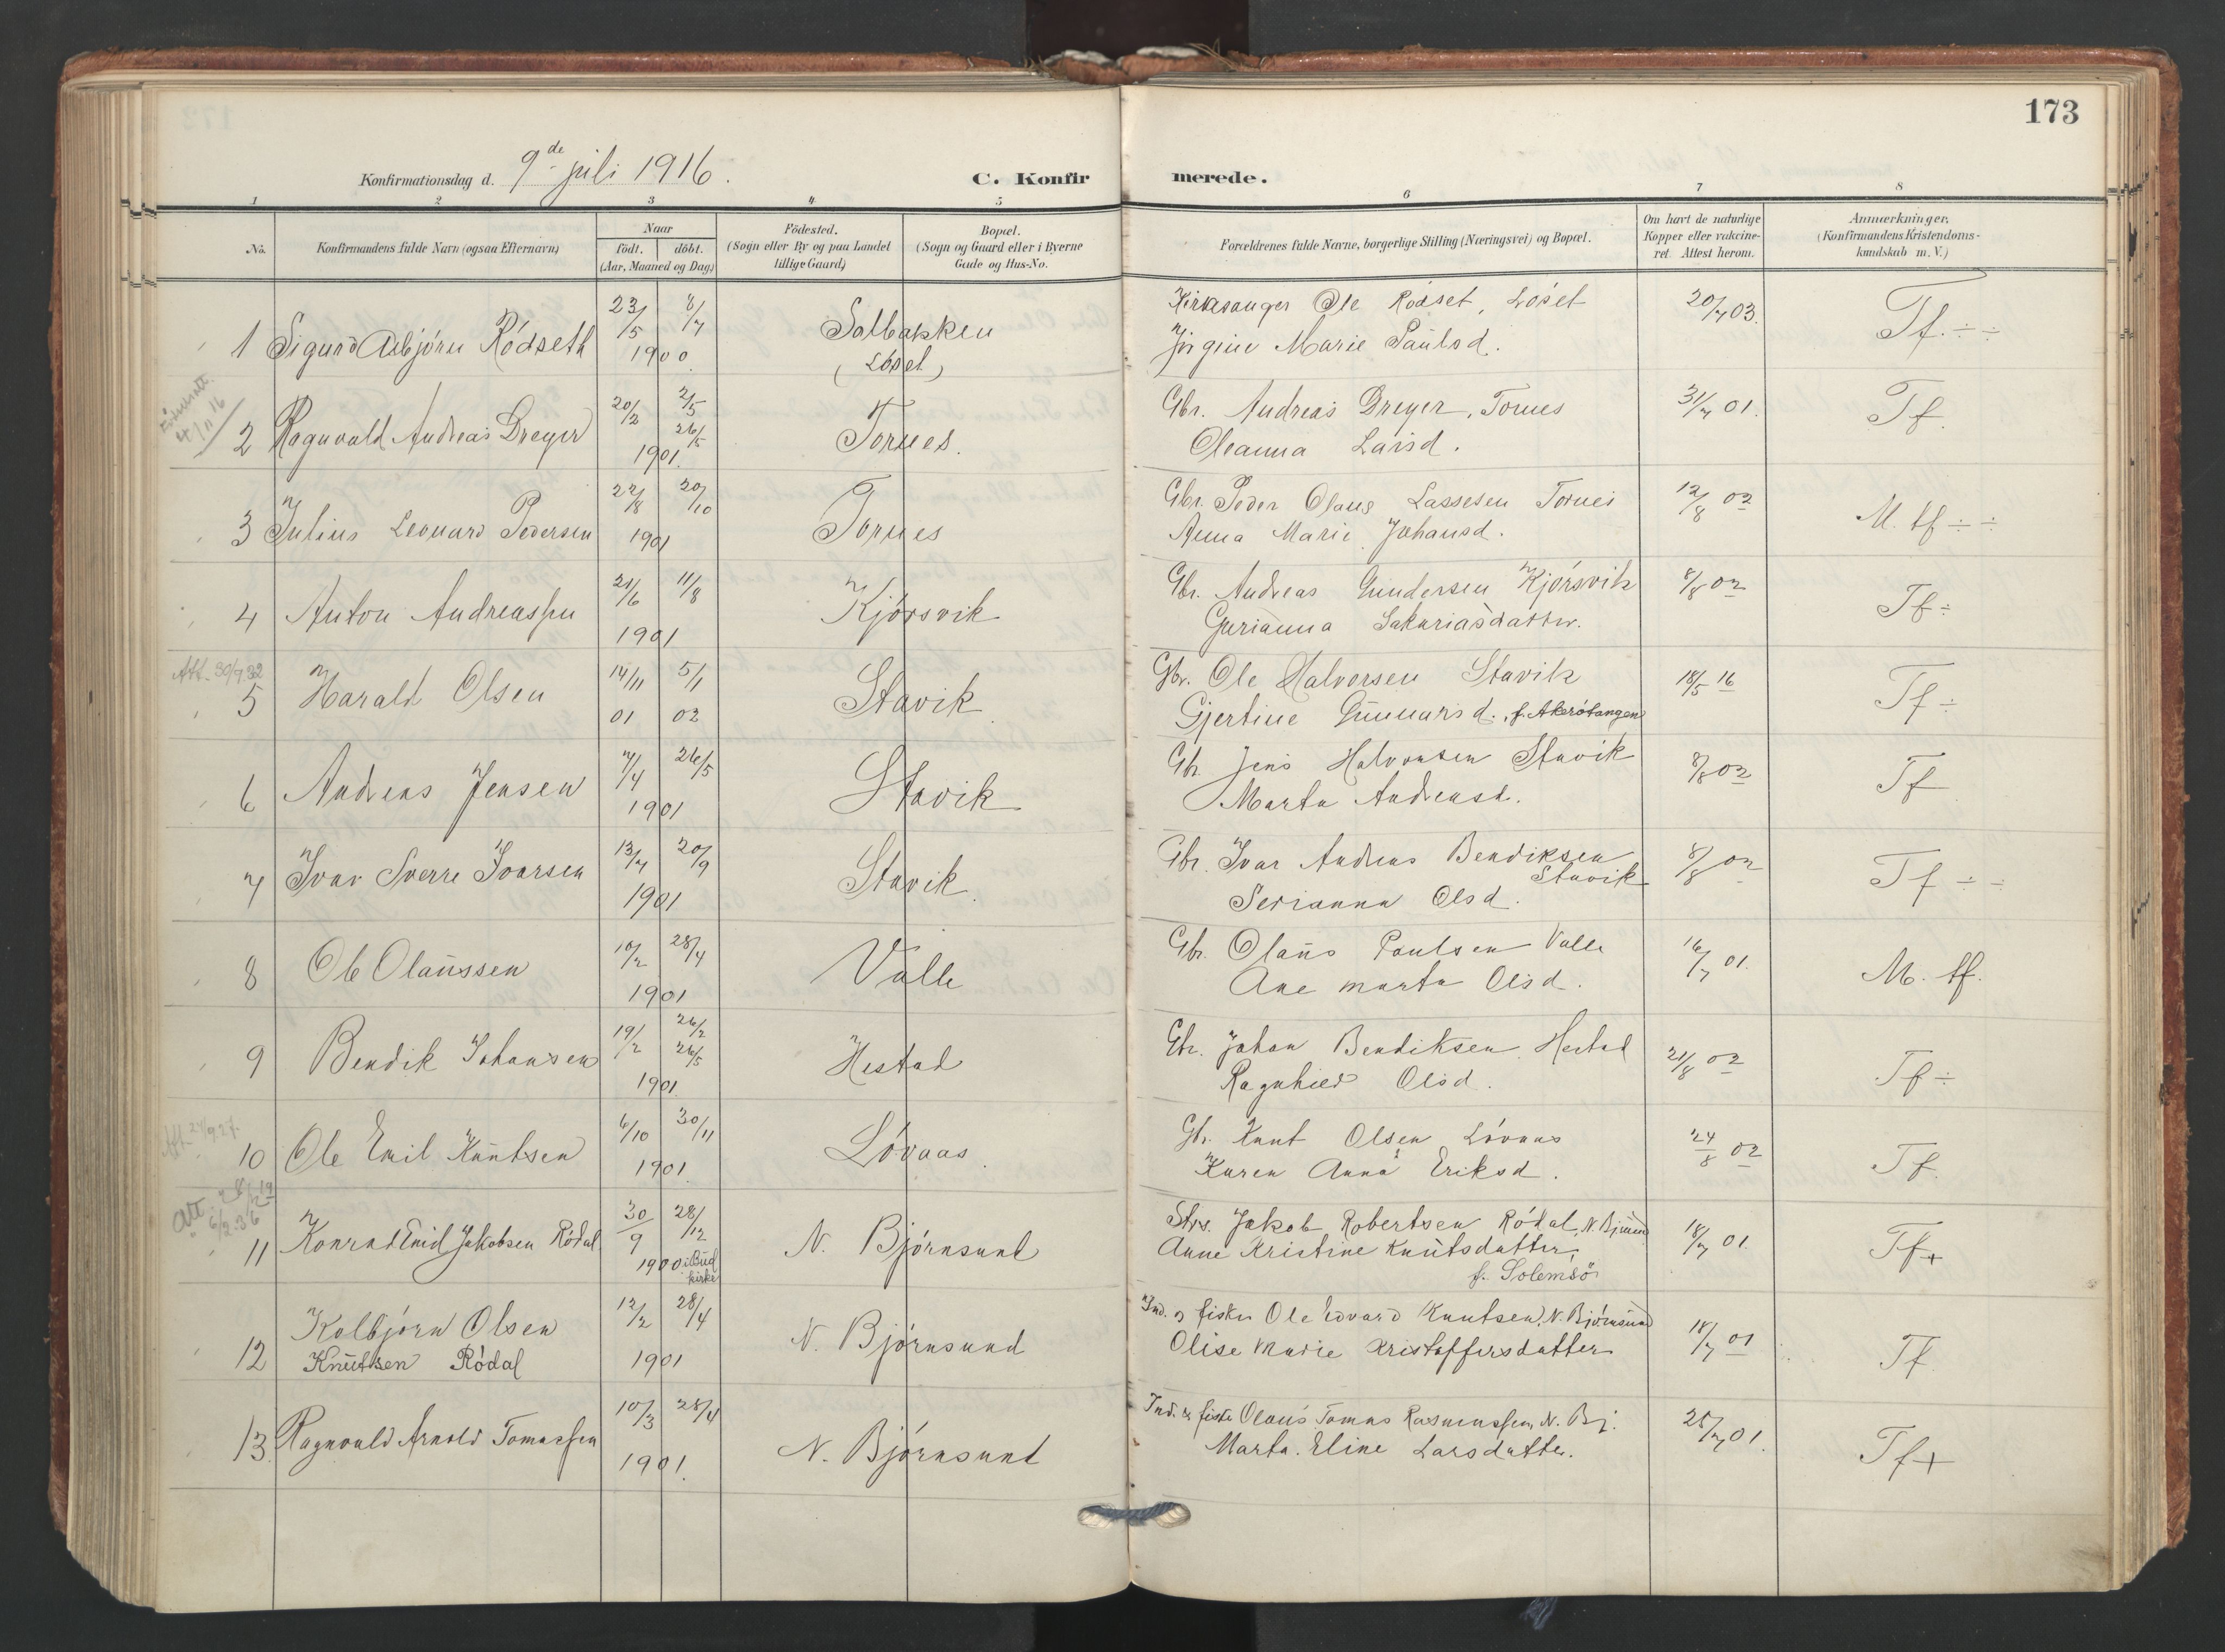 173
Konfirmationsdag d. 9de juli 1916.
C. Konfirmerede.
1 2 3 4 5 6 7 8
No.
Konfirmandens fulde Navn (ogsaa Efternavn)
Naar
födt. döbt.
(Aar, Maaned og Dag)
Födested.
(Sogn eller By og paa Landet
tillige Gaard)
Bopæl.
(Sogn og Gaard eller i Byerne
Gade og Hus-No.
Forældrenes fulde Navne, borgerlige Stilling (Næringsvei) og Bopæl.
Om havt de naturlige
Kopper eller vakcine-
ret. Attest herom.
Anmærkninger.
(Konfirmandens Kristendoms-
kundskab m.V.)
1 Sigurd Asbjörn Rödseth 23/5 8/7 1900. Solbakken (Löset) Kirkesanger Ole Rödset, Löset 20/7 03. Tf. ÷ ÷
Jörgine Marie Paulsd.
2 Ragnvald Andreas Dreyer 20/2 2/5 26/5 1901. Tornes. Gbr. Andreas Dreyer, Tornes 31/7 01. Tf.
Oleanna Larsd.
3 Julius Leonard Pedersen 22/8 20/10 1901 Tornes Gbr. Peder Olaus Lassesen Tornes 12/8 02 M. tf ÷ ÷
Anna Marie Johansd.
4 Anton Andreassen 21/6 11/8 1901 Kjörsvik Gbr. Andreas Gundersen Kjörsvik 8/8 02 Tf ÷
Gurianna Sakariasdatter.
Att. 30/9.32
5 Harald Olsen 14/11 01 5/1 02 Stavik Gbr. Ole Halvorsen Stavik 18/5 16 Tf ÷
Gjertine Gunnarsd., f. Akerötangen
6 Andreas Jensen 7/4 26/5 1901 Stavik Gbr. Jens Halvorsen Stavik 8/8 02 Tf
Marta Andreasd.
7 Ivar Sverre Ivarsen 13/7 20/9 1901 Stavik. Gbr. Ivar Andreas Bendiksen 8/8 02 Tf ÷ ÷
Stavik
Serianna Olsd.
8 Ole Olaussen 10/2 28/4 1901 Valle Gbr. Olaus Paulsen Valle 16/7 01. M. tf.
Ane Marta Olsd.
9 Bendik Johansen 19/2 26/2 26/5 1901. Hestad Gbr. Johan Bendiksen Hestad 21/8 02 Tf ÷
Ragnhild Olsd.
Att. 24/9 27.
10 Ole Emil Knutsen 6/10 30/11 1901. Lövaas. Gbr. Knut Olsen Lövaas 24/8 02 Tf.
Karen Anna Eriksd.
Att. 6/2.36
11 Konrad Emil Jakobsen Rödal 30/9 28/12 1900 i Bud kirke N. Björnsund Strs. Jakob Robertsen Rödal, N. Björnsund 18/7 01. Tf +
Anne Kristine Knutsdatter,
f. Solemsö
12 Kolbjörn Olsen 12/2 28/4 1901 N. Björnsund Ind. & fisker Ole Edvard Knutsen, N. Björnsund 18/7 01 Tf.
Knutsen Rödal Olise Marie Kristoffersdatter
13. Ragnvald Arnold Tomassen 10/3 28/4 1901. N. Björnsund Ind. & fisker Olaus Tomas Rasmussen, N. Bj. 25/7 01. Tf +
Marta Eline Larsdatter.